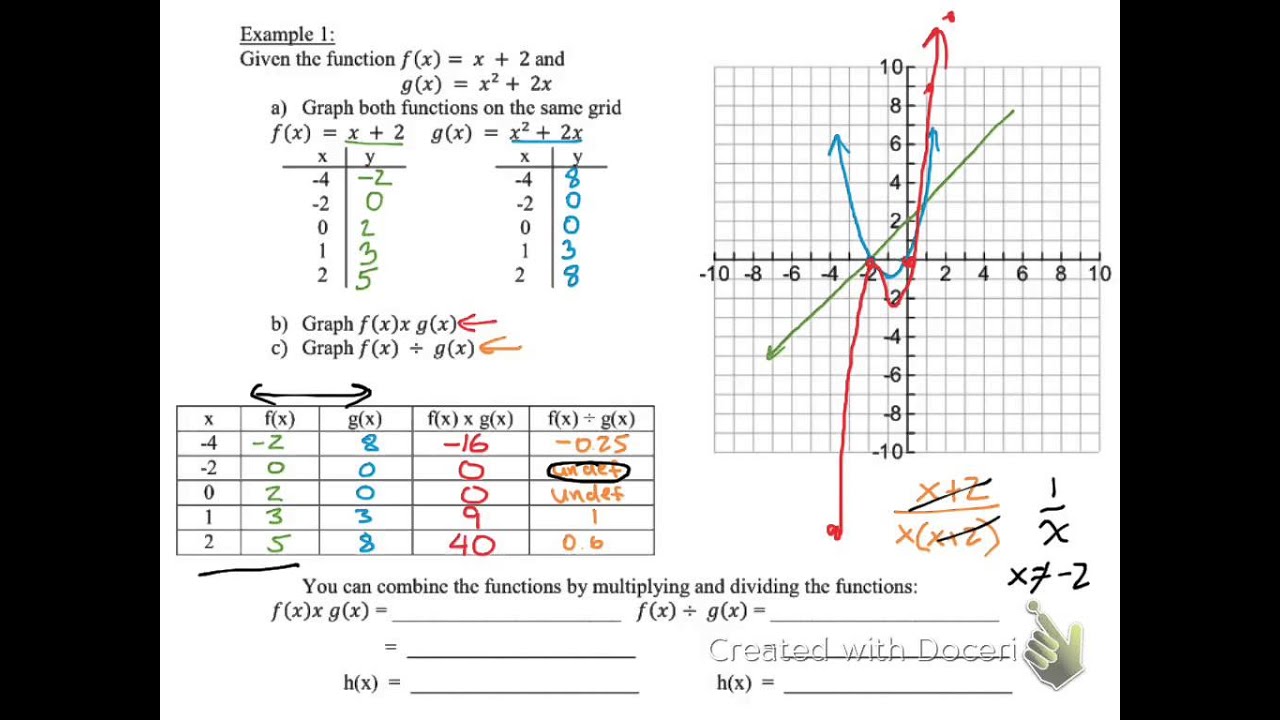 Example 1:
Given the function f(x) = x + 2 and
g(x) = x² + 2x
a) Graph both functions on the same grid
f(x) = x + 2 g(x) = x² + 2x
x y x y
-4 -2 -4 8
-2 0 -2 0
0 2 0 0
1 3 1 3
2 5 2 8
b) Graph f(x)x g(x)
c) Graph f(x) ÷ g(x)
10
8
6
4
2
-10 -8 -6 -4 -2 2 4 6 8 10
-2
-4
-6
-8
-10
x f(x) g(x) f(x) x g(x) f(x) ÷ g(x)
-4 -2 8 -16 -0.25
-2 0 0 0 undef
0 2 0 0 undef
1 3 3 9 1
2 5 8 40 0.6
x+2 1
x(x+2) x
x≠-2
You can combine the functions by multiplying and dividing the functions:
f(x)x g(x) = f(x) ÷ g(x) =
= =
Created with Doceri
h(x) = h(x) =